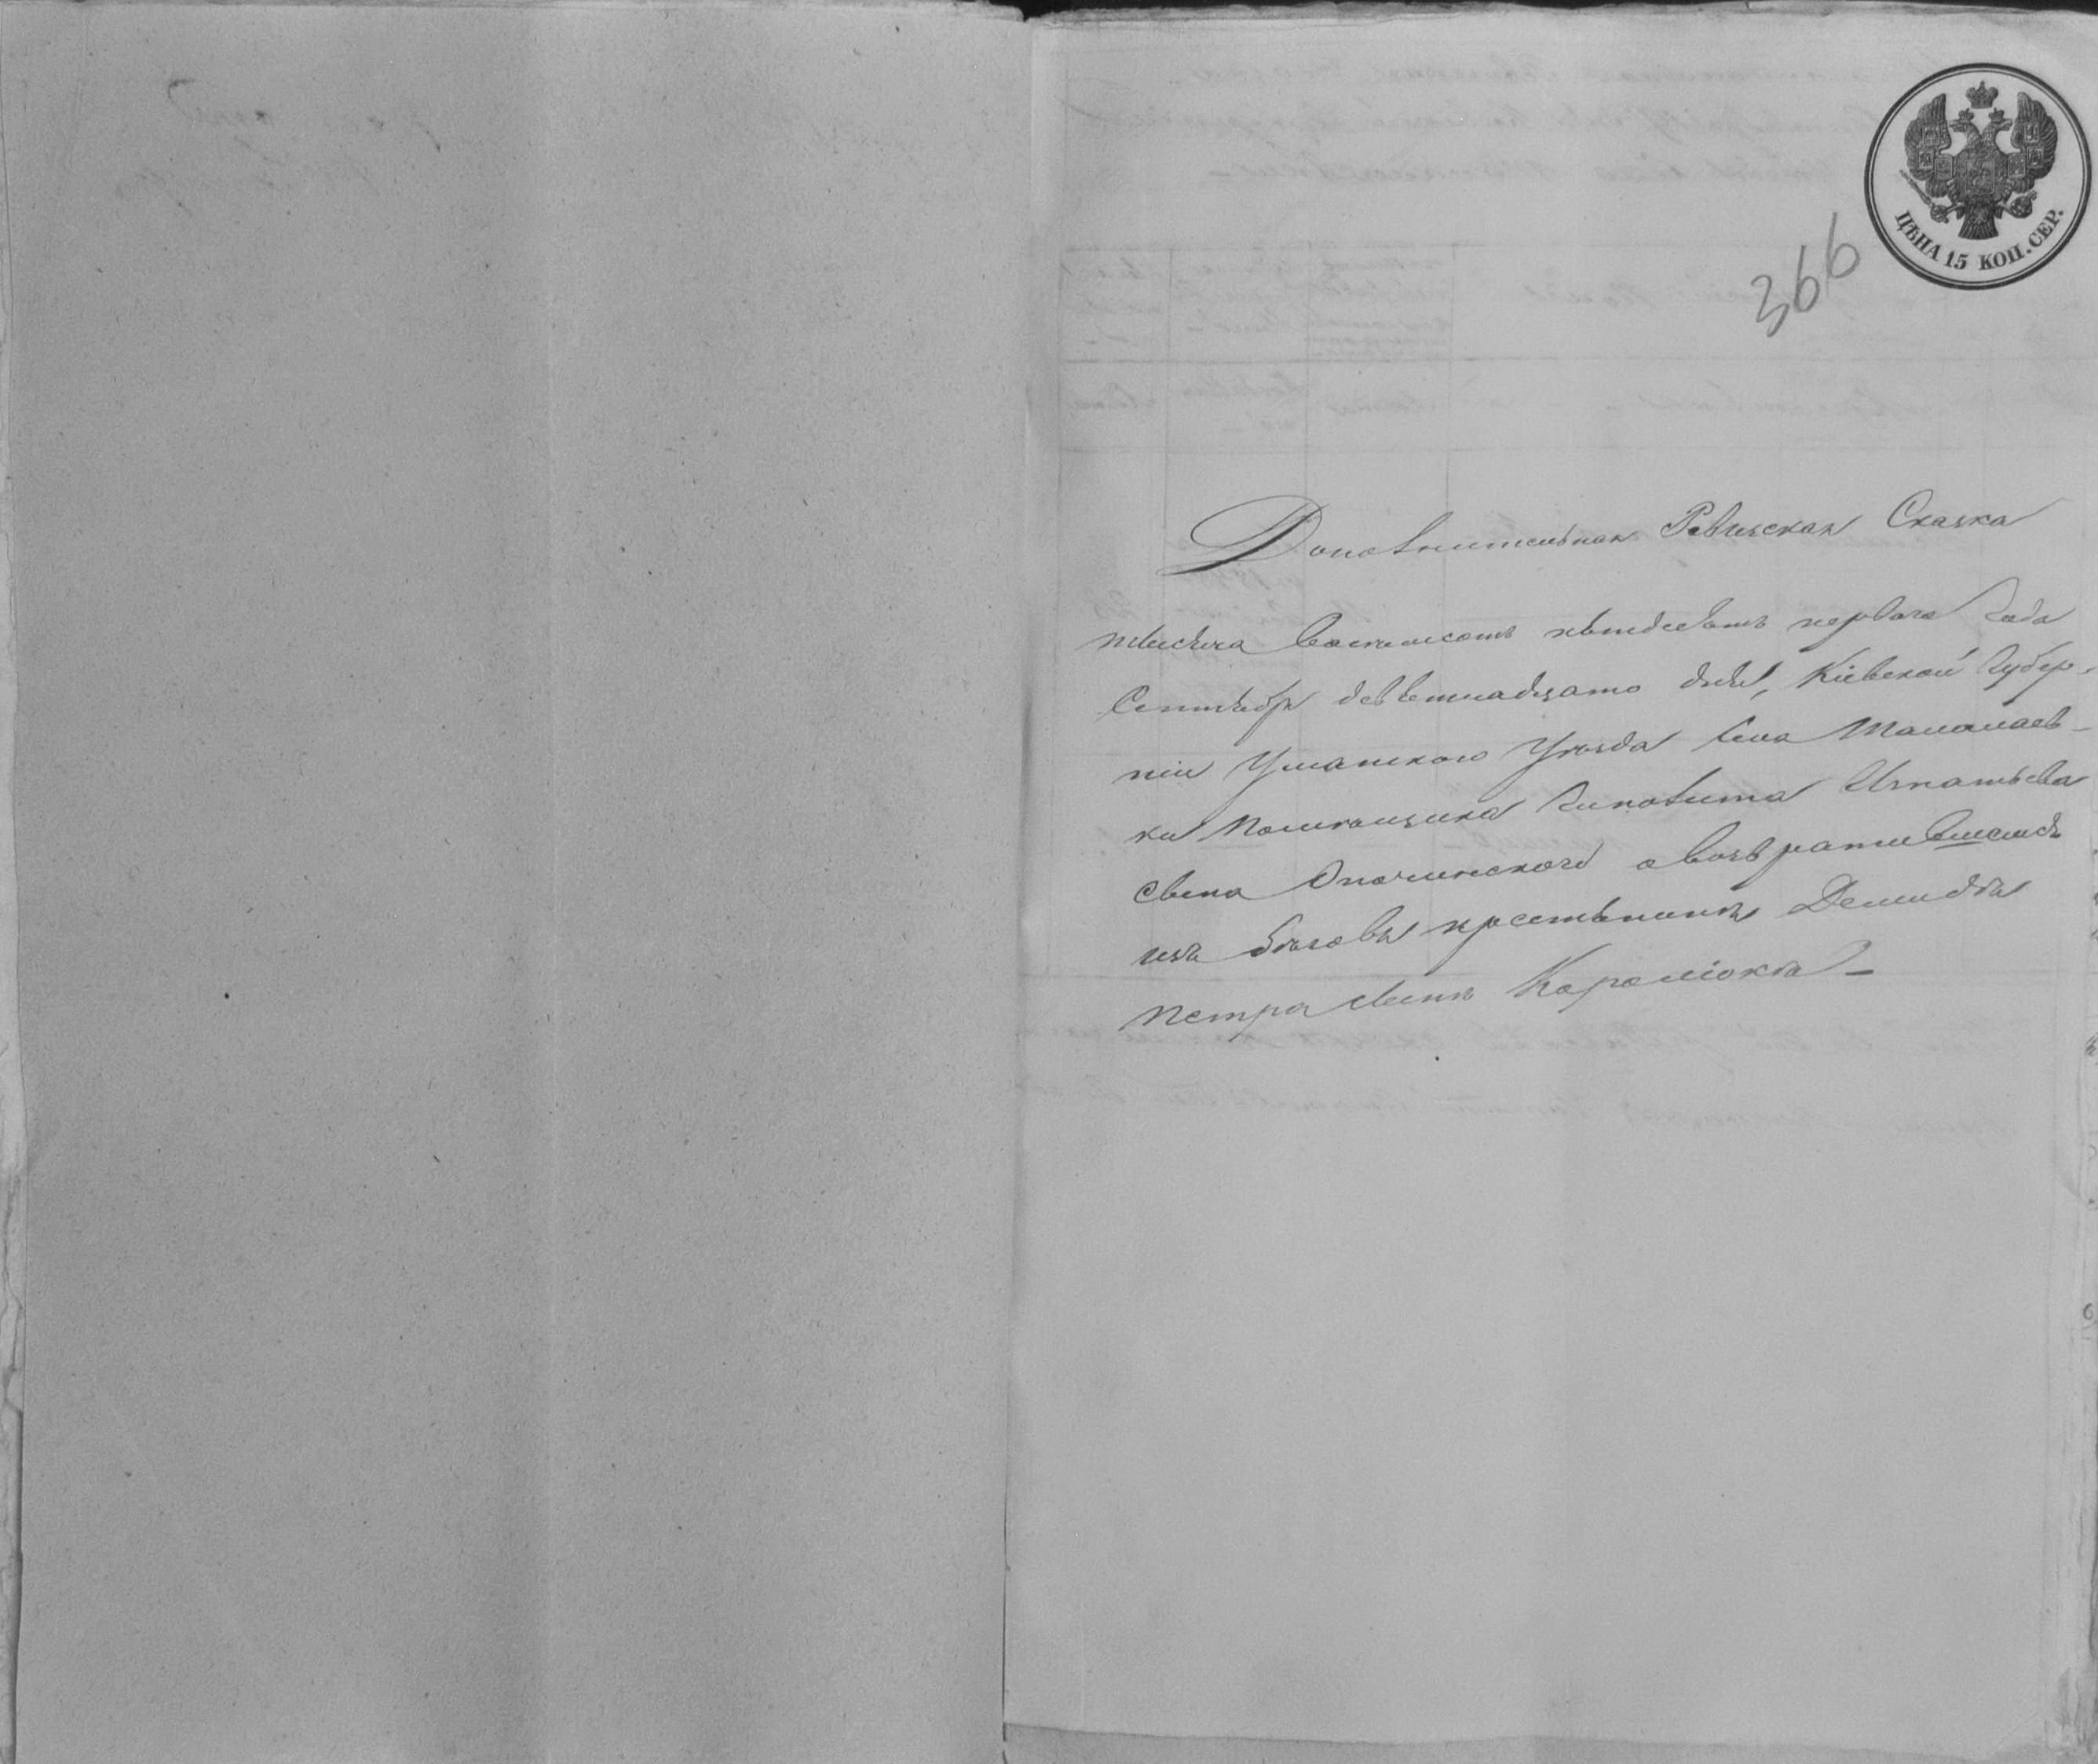 ЦѢНА 15 КОП. СЕР.
366
Дополнительная Ревизская Сказка
тысяча восемьсотъ пятдесятъ перваго Года
Сентября девятнадцатого дня, Кіевской Губер-
ніи Уманского Уезда села Маналаев-
ки помещика Игнатьева
сына Опочинского о возвратившемся
изъ бегов крестьянине Демиде
Петра сыне Каромюке